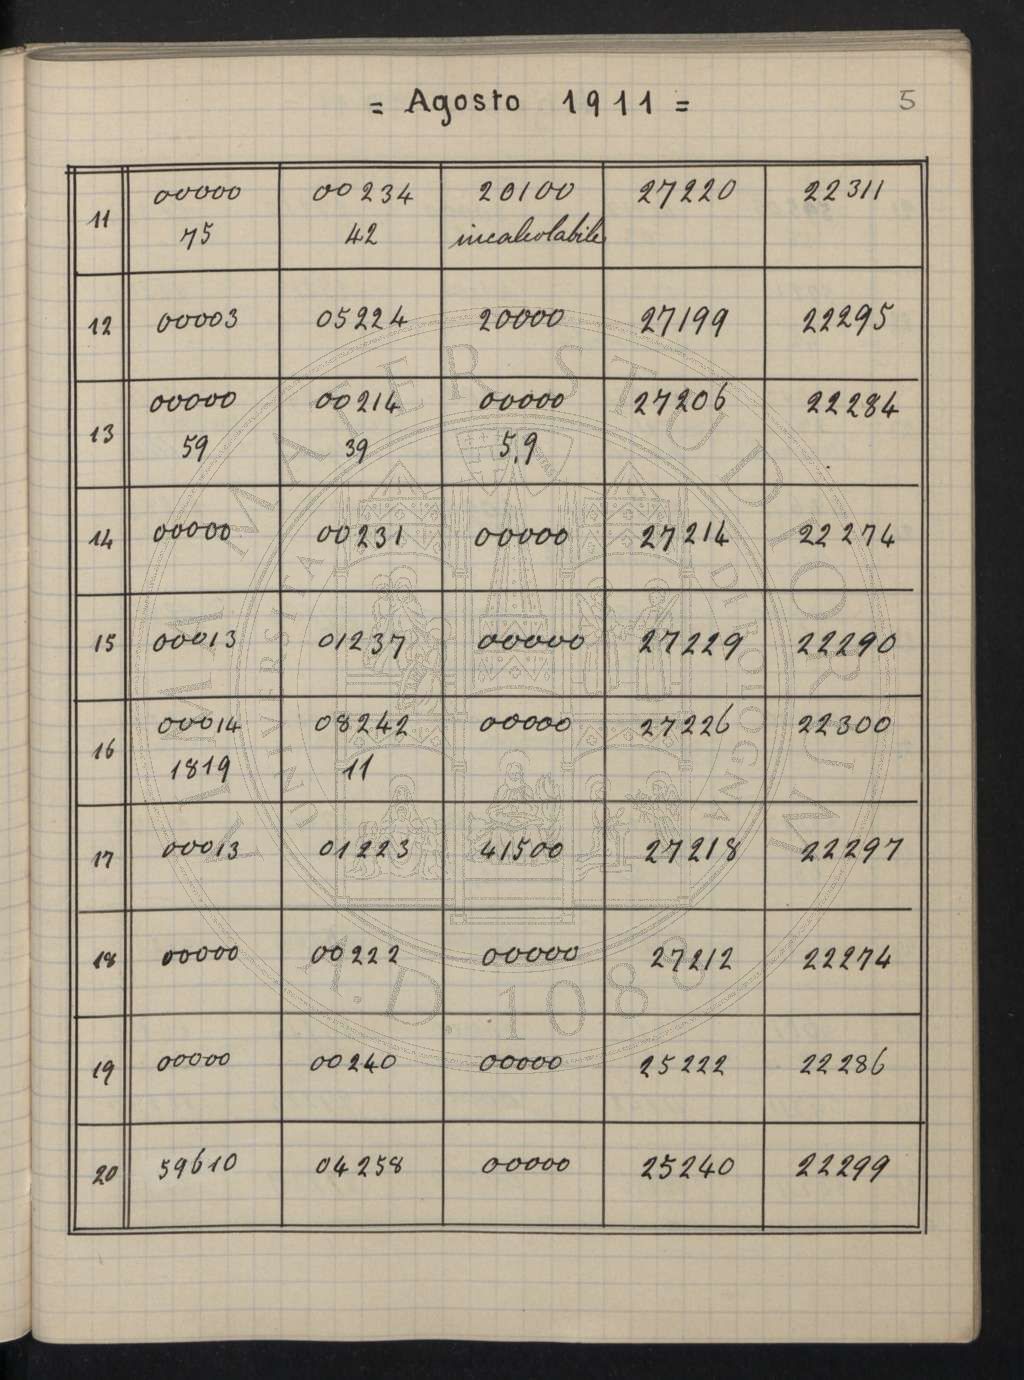 = Agosto 1911 =
5
11 00000 00234 20100 27220 22311
75 42 incalcolabile
12 00003 05224 20000 27199 22295
13 00000 00214 00000 27206 22284
59 39 5,9
14 00000 00231 00000 27214 22274
15 00013 01237 00000 27229 22290
16 00014 08242 00000 27226 22300
1819 11
17 00013 01223 41500 27218 22297
18 00000 00222 00000 27212 22274
19 00000 00240 00000 25222 22286
20 59610 04258 00000 25240 22299
ALMA MATER STUDIORUM
UNIVERSITÀ DI BOLOGNA
A.D. 1088